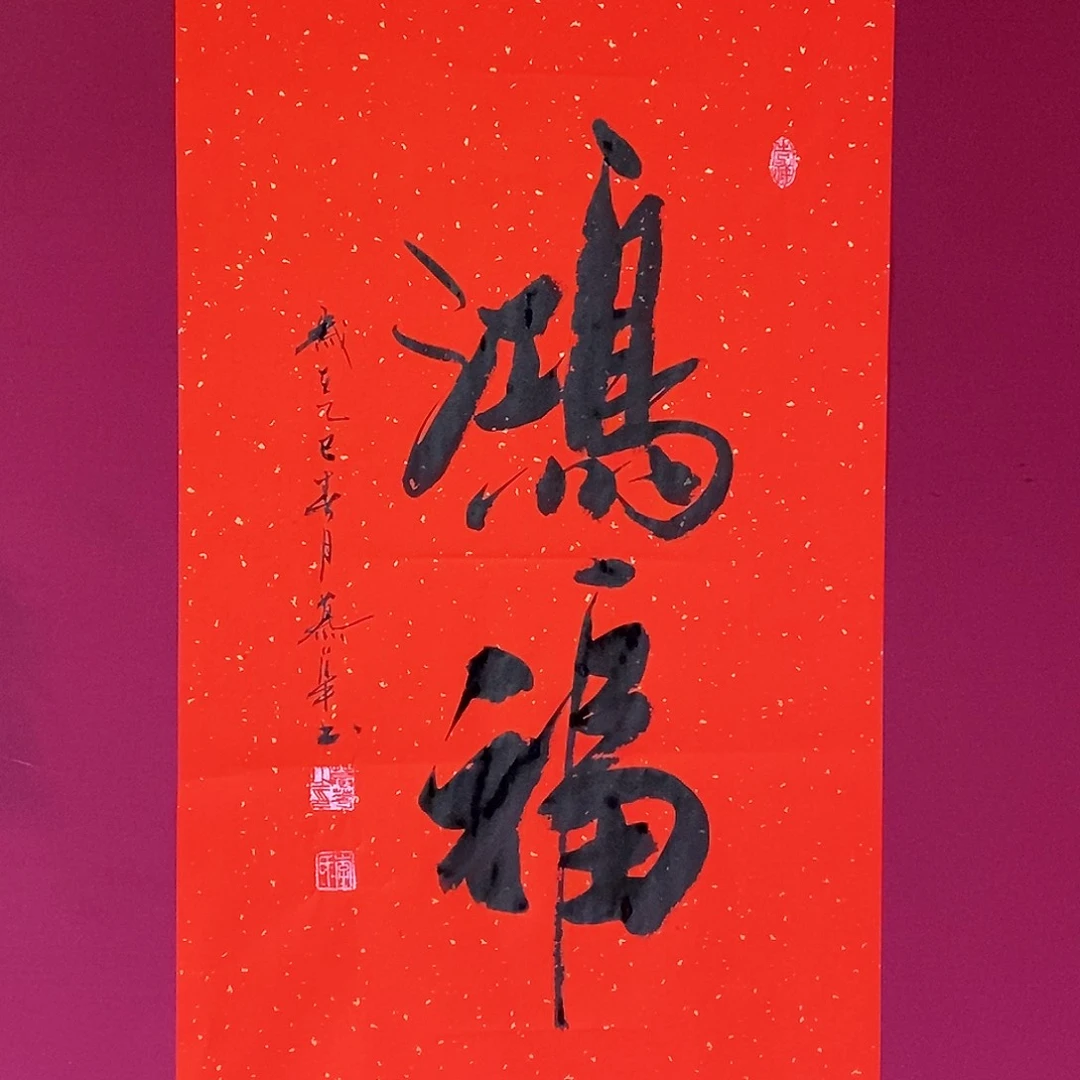 鴻福
歲在乙巳春月